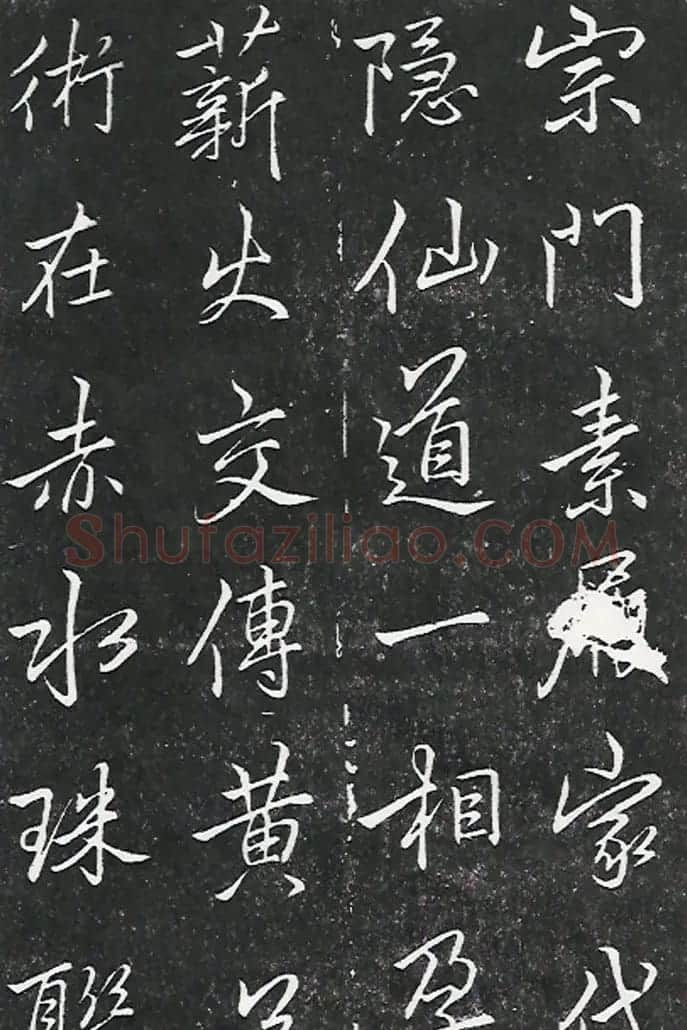 宗門素家代
隐仙道一相
薪火交傳黄
術在赤水珠聯
Shufaziliao.COM